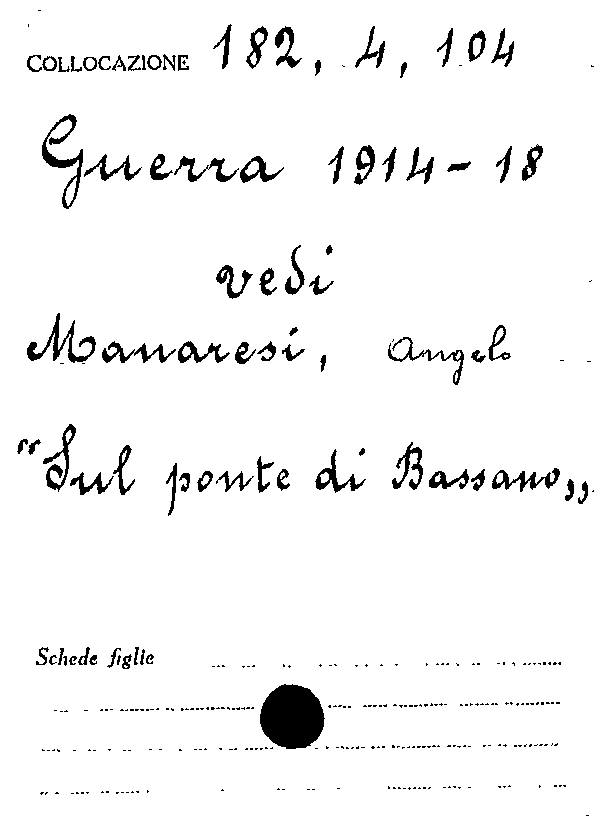 COLLOCAZIONE 182, 4, 104
Guerra 1914-18
vedi
Manaresi, Angelo
"Sul ponte di Bassano„
Schede figlie